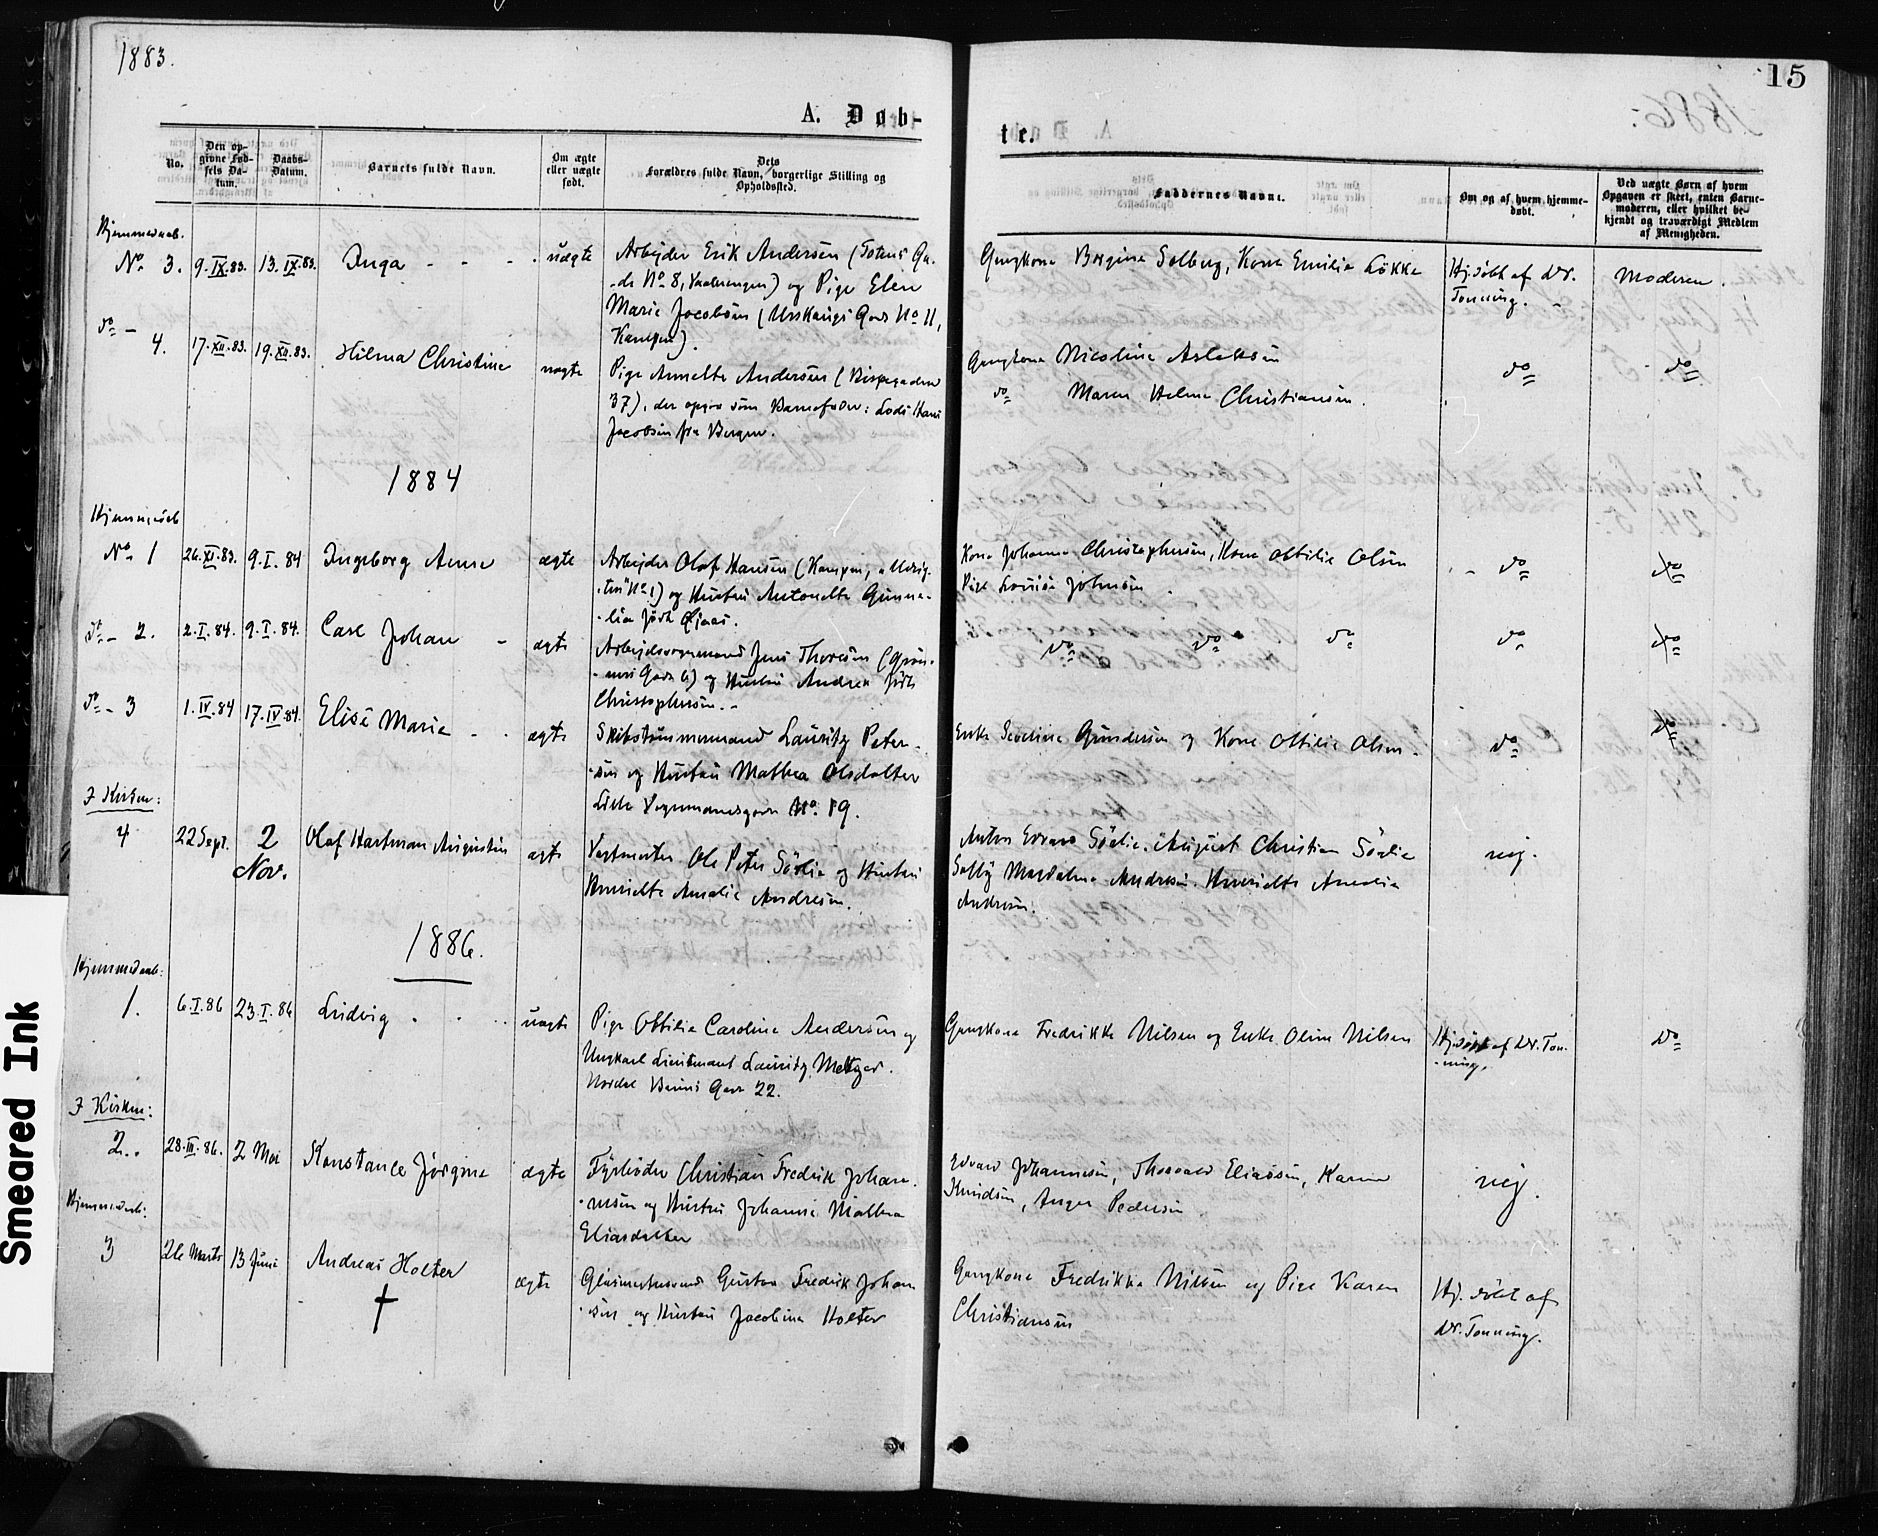 1883.
15
A. Døb-
te.
No.
Den op-
givne Fød-
sels Da-
tum.
Daabs-
Datum.
Barnets fulde Navn.
Om ægte
eller uægte
født.
Dets
Forældres fulde Navn, borgerlige Stilling og
Opholdssted.
Faddernes Navne.
Om og af hvem hjemme-
døbt.
Ved uægte Børn af hvem
Opgaven er skeet, enten Barne-
moderen, eller hvilket be-
kjendt og troværdigt Medlem
af Menigheden.
Hjemmedaab.
No 3. 9.IX.83. 13.IX.83. Inga - - - uægte
Arbejder Erik Andersen (Totens Ga-
de No 8, Vaalerengen) og Pige Elen
Marie Jacobsen (Urskougs Gade No 11,
Kampen).
Gangkone Borgine Solberg, Kone Emilie Løkke
Hj.døbt af Dr.
Tonning.
Moderen.
do - 4. 17.XII.83. 19.XII.83. Hilma Christine uægte
Pige Annette Andersen (Bispegaden
37), der opgav som Barnefader: Lods Hans
Jacobsen fra Bergen.
Gangkone Nicoline Aslaksen
do Maren Helene Christiansen.
do
do
1884
Hjemmedaab
No 1 26.XI.83. 9.I.84 Ingeborg Anna ægte
Arbejder Olaf Hansen (Kampen,
No 1) og Hustru Antonette Gunne-
lia født
Kone Johanne Christophersen, Kone Ottilie Olsen
Pige Lovise Johnsen
do
do
do - 2. 2.I.84. 9.I.84. Carl Johan - ægte
Arbejdsformand Jens Thoresen (Grøn-
Gade 6) og Hustru Andrea født
Christophersen. -
do do do
do
do
do - 3 1.IV.84 17.IV.84. Elise Marie - - ægte
Skibstømmermand Lauritz Peter-
sen og Hustru Mathea Olsdatter
Lille Vognmandsgade No 19.
Enke Severine Gundersen og Kone Ottilie Olsen.
do
do
I Kirken:
4 22 Sept. 2
Nov.
Olaf Hartman Augustin ægte
Vagtmester Ole Peter Sørlie og Hustru
Henriette Amalie Andresen.
Anton Edvard Sørlie. August Christian Sørlie
Magdalena Andresen. Henriette Amalie
Andresen.
nej.
1886.
Hjemmedaab:
1. 6.I.86 23.I.86 Ludvig . . .. uægte
Pige Ottilie Caroline Andersen og
Ungkarl Lieutenant Lauritz Metzger.
Nordal Bruns Gade 22.
Gangkone Fredrikke Nilsen og Enke Oline Nilsen
Hj.døbt af Dr. Ton-
ning.
do
I Kirken:
2.. 28.III.86. 2 Mai Konstance Jørgine ægte
Fyrbøder Christian Fredrik Johan-
nesen og Hustru Johanne Mathea
Eliasdatter
Edvard Johannesen, Thorvald Eliassen, Karen
Knudsen, Anger Pedersen
nej.
Hjemmedaab:
3 26 Marts 13 Juni Andreas Holter
†
ægte
Glasmestersvend Gustav Fredrik Johan-
sen og Hustru Jacobine Holter
Gangkone Fredrikke Nilsen og Pige Karen
Christiansen
Hj. døbt af
Dr. Tonning.
Smeared Ink